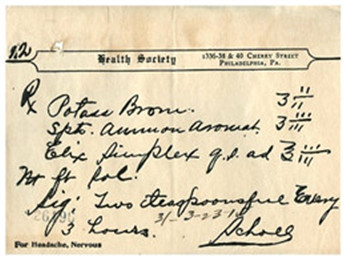 Health Society
1336-38 & 40 CHERRY STREET
PHILADELPHIA, PA.
℞ Potass Brom. ʒ ii
Spts. Ammon Aromat. ʒ iii
Elix Simplex q.s. ad ℥ iii
M ft Sol.
Sig: Two teaspoonsful Every
3 hours.
For Headache, Nervous